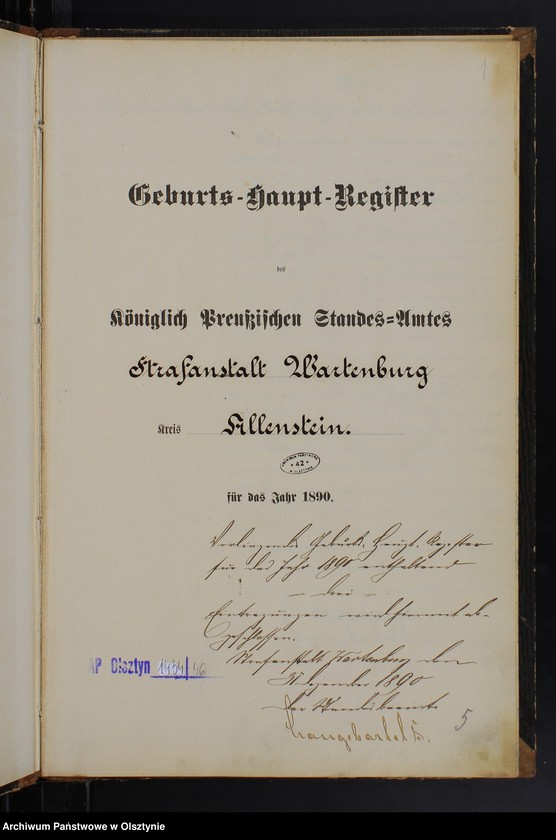 1
Geburts-Haupt-Register
des
Königlich Preußischen Standes-Amtes
Strafanstalt Wartenburg
Kreis Allenstein.
42
für das Jahr 1890.
Vorliegendes Geburts-Haupt-Register
für das Jahr 1890 enthaltend
— drei —
Eintragungen wird hiermit ab-
geschlossen.
Strafanstalt Wartenburg den
31 Dezember 1890
Der Standesbeamte
AP Olsztyn 1434/46
5
Archiwum Państwowe w Olsztynie